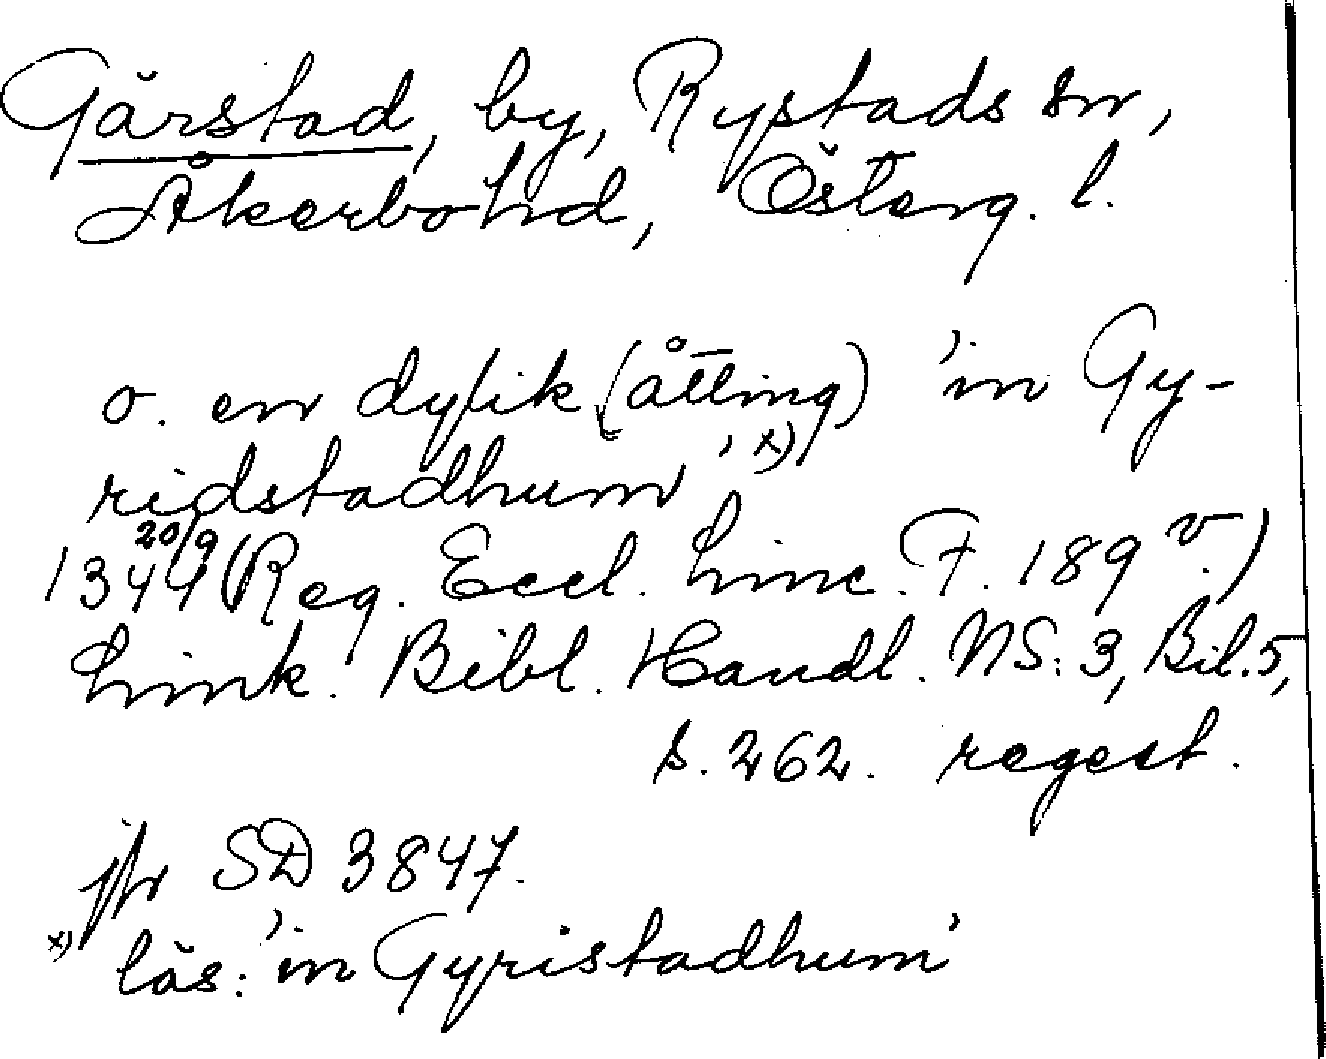 Gärstad, by, Rystads sn,
Åkerbo hd, Österg. l.
o. en dylik (åtting) 'in Gy-
ridstadhum' x)
20/9
1344 (Reg. Eccl. Linc. F. 189 v.)
Link. Bibl. Handl. NS: 3, Bil. 5,
s. 262. regest.
jfr SD 3847.
x) läs: 'in Gyristadhum'